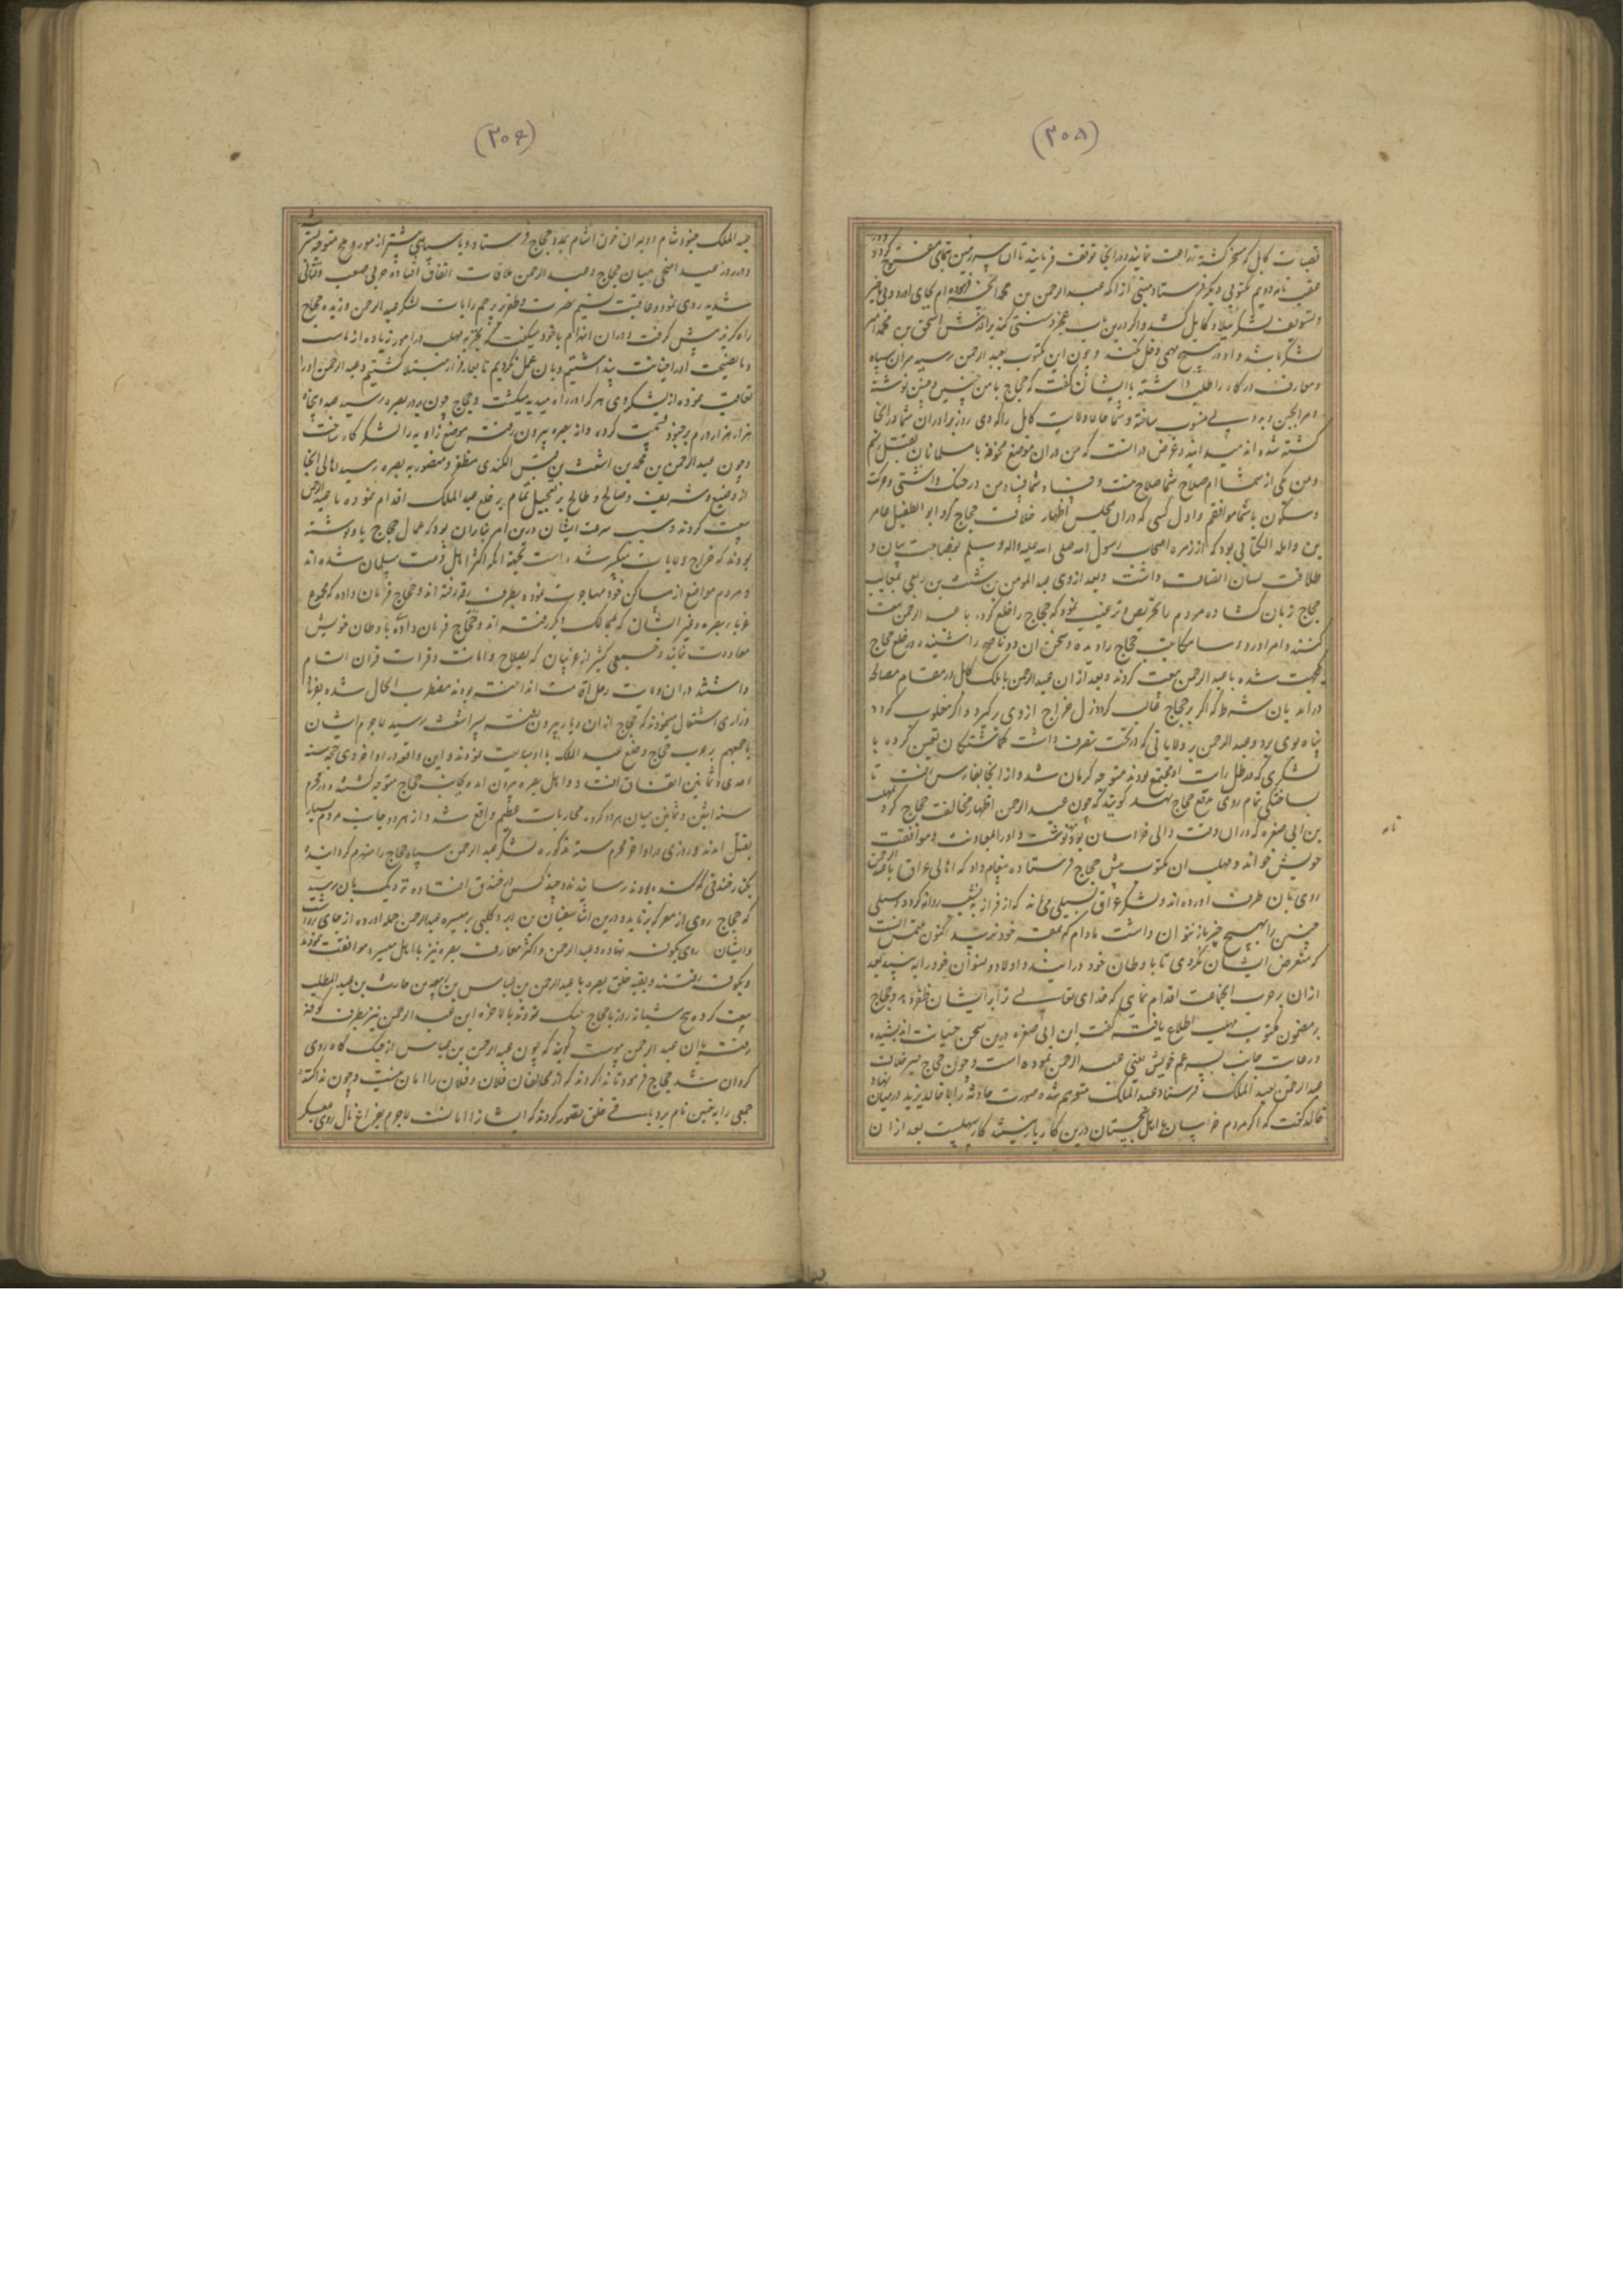 (۳۰۸)
قصبات کابل که مسخر گشته زراعت نمایند و در انجا توقف فرمایند تا ان سرزمین بتمامی مفتوح گردد و در
عقب نامه دویم مکتوبی دیگر فرستاد مبنی از انکه عبد الرحمن بن محمد انچه فرموده ام بجای اورد و بی تاخیر
و تسویف لشکر ببلاد کابل کشد و اگر درین باب عجز و سستی کند برادرش اسحق بن محمد امیر
لشکر باشد و او در هیچ مهمی دخل نکند و چون این مکتوب بعبد الرحمن رسید سران سپاه
و معارف درگاه را طلب داشته با ایشان گفت که حجاج بامن چنین و چنین نوشته
و مرا بجبن و بددلی منسوب ساخته و شما جانا ولایت کابل را که دی روز برادران شما در انجا
کشته شده اند میدانید و غرض او انست که من دران موضع مخوف با مسلمانان بقتل رسم
و من یکی از شما ام صلاح شما صلاح منست و فساد شما فساد من در جنگ و اشتی و حرکت
و سکون با شما موافقم و اول کسی که دران مجلس اظهار خلافت حجاج کرد ابو الطفیل عامر
بن واثله الکنانی بود که از زمره اصحاب رسول الله صلی الله علیه واله وسلم بفصاحت بیان و
طلاقت لسان اتصاف داشت و بعد از وی عبد المومن بن شبث بن ربعی بمعایب
حجاج زبان گشاده مردم را تحریص و ترغیب نمود که حجاج را خلع کرده با عبد الرحمن بیعت
کنند و امرا و روسا مکاتیب حجاج را دیده و سخن ان دو ناصح را شنیده در خلع حجاج
یکجهت شده با عبد الرحمن بیعت کردند و بعد ازان عبد الرحمن با ملک کابل در مقام مصالحه
درامد بان شرط که اگر بر حجاج غالب گردد نزل خراج از وی نگیرد و اگر مغلوب گردد
پناه بوی برد و عبد الرحمن بر ولایاتی که در تحت تصرف داشت گماشتگان تعیین کرده با
لشکری که در ظل رایت او مجتمع بودند متوجه کرمان شد و از انجا بفارس رفت تا
بساختگی تمام روی بدفع حجاج نهد گویند که چون عبد الرحمن اظهار مخالفت حجاج کرد بمهلب
بن ابی صفره که دران وقت والی خراسان بود نامه نوشت و او را بمعاونت و موافقت
خویش خواند و مهلب ان مکتوب پیش حجاج فرستاده پیغام داد که اهالی عراق با عبد الرحمن
روی بان طرف اورده اند و لشکر عراق بسیلی می ماند که از فراز به نشیب روانه گردد و سیلی
چنین را بهیچ چیز باز نتوان داشت مادام که بمقر خود نرسد اکنون ملتمس انست
که متعرض ایشان نگردی تا با وطان خود درایند و اولاد و نسوان خود را به بینند بعد
ازان بر حرب انجماعت اقدام نمای که خدای تعالی ترا بر ایشان ظفر دهد و حجاج
بر مضمون مکتوب مهلب اطلاع یافته گفت ابن ابی صفره درین سخن خیانت اندیشیده
و رعایت جانب پسر عم خویش یعنی عبد الرحمن نموده است و چون حجاج خبر خلاف
عبد الرحمن بعبد الملک فرستاد عبد الملک متوهم شده صورت حادثه را با خالد یزید در میان نهاد
خالد گفت که اگر مردم خراسان با اهل سجستان درین کار یار نیستند کار سهلیست بعد ازان
نامه
(۳۰۹)
عبد الملک جنود شام و دلیران خون اشام بمدد حجاج فرستاد و با سپاهی بیشتر از مور و ملخ متوجه تستر شد
و در روز عید اضحی میان حجاج و عبد الرحمن ملاقات اتفاق افتاده حربی صعب و قتالی
شدید روی نمود و عاقبت نسیم نصرت و ظفر بر پرچم رایات لشکر عبد الرحمن وزیده حجاج
راه گریز پیش گرفت و دران انهزام باخود میگفت که تجربه مهلب در امور زیاده از ماست
و ما نصیحت او را خیانت پنداشتیم و بان عمل نکردیم تا بعار فرار مبتلا گشتیم و عبد الرحمن او را
تعاقب نموده از لشکر وی هر کرا در راه میدید میکشت و حجاج چون بدر بصره رسید صد و پنجاه
هزار هزار درم بر جنود قسمت کرده و از بصره بیرون رفته موضع زاویه را لشکر گاه ساخت
و چون عبد الرحمن بن محمد بن اشعث بن قیس الکندی مظفر و منصور به بصره رسید اهالی انجا
از وضیع و شریف و صالح و طالح بر تعجیل تمام بر خلع عبد الملک اقدام نموده با عبد الرحمن
بیعت کردند و سبب سرعت ایشان درین امر بناران بود که عمال حجاج باو نوشته
بودند که خراج ولایات منکسر شده است بجهة انکه اکثر اهل ذمت مسلمان شده اند
و مردم مواضع از مساکن خود مهاجرت نموده بطرف رفته اند و حجاج فرمان داده که مجموع
غربا بصره و غیر ایشان که بممالک دیگر رفته اند و حجاج فرمان داده با وطان خویش
معاودت نمایند و جمعی کثیر از غریبان که بصلاح و امانت و قرات قران اتسام
داشتند دران ولایت رحل اقامت انداخته بودند مضطرب الحال شده بغوغا
و زاری اشتغال مینمودند که حجاج ازان دیار بیرون رفته پسر اشعث رسید لاجرم ایشان
باجمعهم بر حرب حجاج و خلع عبد الملک با او مبایعت نمودند و این واقعه در اواخر ذی حجه سنه
احدی و ثمانین اتفاق افتاد و اهل بصره بیرون امده بجانب حجاج متوجه گشتند و در محرم
سنه اثنین و ثمانین میان هر دو گروه محاربات عظیم واقع شد و از هر دو جانب مردم بسیار
بقتل امدند و روزی در اواخر محرم سنه مذکوره لشکر عبد الرحمن سپاه حجاج را منهزم گردانیده
بکنار خندقی که کنده بودند رسانیدند و چند کس در خندق افتاده نزدیک بان رسید
که حجاج روی از معرکه برتابد و درین اثنا سفیان بن ابرد کلبی بر میسره عبد الرحمن حمله اورده از جای برداشت
و ایشان روی بکوفه نهاده و عبد الرحمن و اکثر معارف بصره نیز با اهل میسره موافقت نموده
و بکوفه رفتند و بقیه خلق بصره با عبد الرحمن بن عباس بن ربیعه بن حارث بن عبد المطلب
بیعت کرده پنج شبانه روز با حجاج جنگ نمودند بالاخره ابن عبد الرحمن نیز بطرف کوفه
رفته باان عبد الرحمن پیوست گویند که چون عبد الرحمن بن عباس از جنگ گاه روی
گردان شد حجاج فرمود تا ندا کردند که از مخالفان فلان و فلان را امان نیست و چون ندا کننده
جمعی را به تعیین نام برد باقی خلق تصور کردند که ایشانرا امانست لاجرم بفراغ بال روی بمعسکر